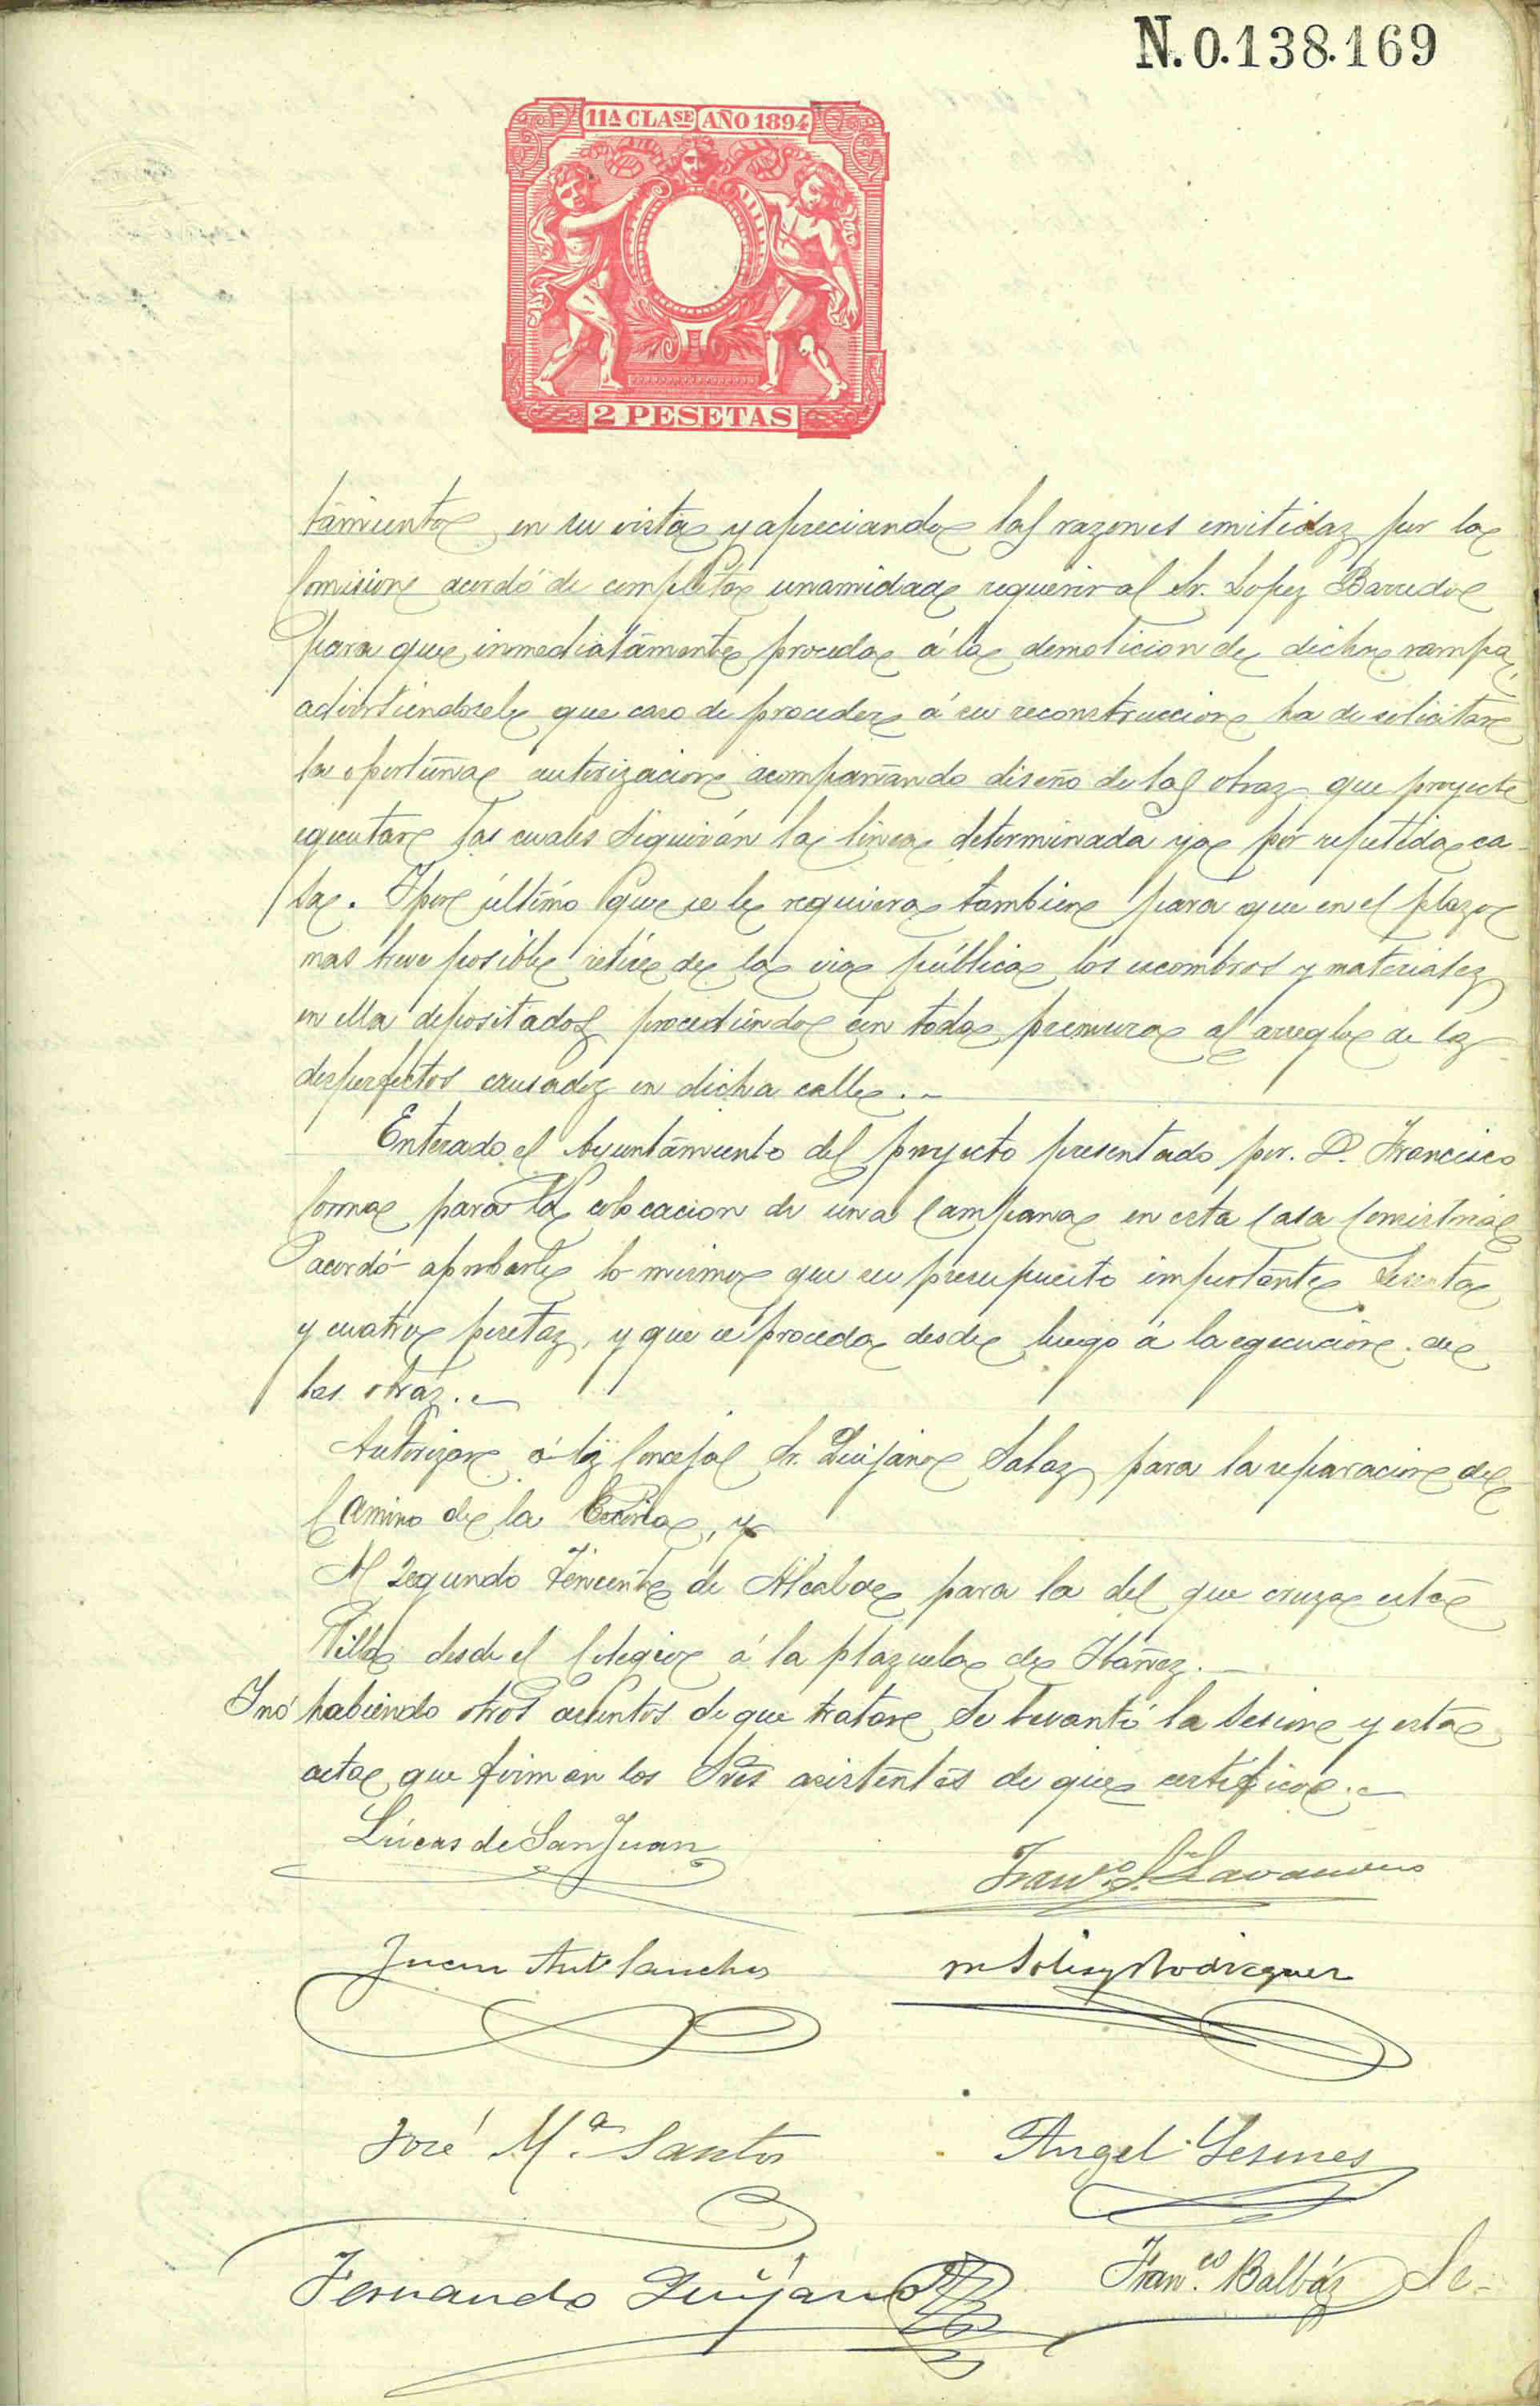 N. 0.138.169
11A CLASE AÑO 1894
2 PESETAS
tamiento en su vista y apreciando las razones emitidas por la
Comision acordó de completa unamidad requerir al Sr. Lopez Barredo
para que inmediatamente proceda á la demolicion de dicha rampa,
advirtiendosele que caso de proceder á su reconstruccion ha de solicitar
la oportuna autorizacion acompañando diseño de las obras que proyecte
egecutar las cuales seguirán la linea determinada ya por repetida ca-
sa. Y por último que se le requiera tambien para que en el plazo
mas breve posible retire de la via pública los escombros y materiales
en ella depositados procediendo con toda premura al arreglo de los
desperfectos causados en dicha calle.
Enterado el Ayuntamiento del proyecto presentado por D. Francisco
para la colocacion de una Campana en esta Casa Consistorial
acordó aprobarle lo mismo que su presupuesto importante sesenta
y cuatro pesetas, y que se proceda desde luego á la egecucion de
las obras.
Autorizar á los Concejal Sr. Quijano Salas para la reparacion del
Camino de la , y
Al Segundo Teniente de Alcalde para la del que cruza esta
Villa desde el Colegio á la plazuela de Ibañez.
Y no habiendo otros asuntos de que tratar se levantó la sesion y esta
acta que firman los Sres asistentes de que certifico.
Lúcas de San Juan
Franco S.
Juan Anto Sanchez
M Solis y Rodriguez
José M.a Santos
Angel Lesmes
Fernando Quijano
Fran.co Balbás Se-